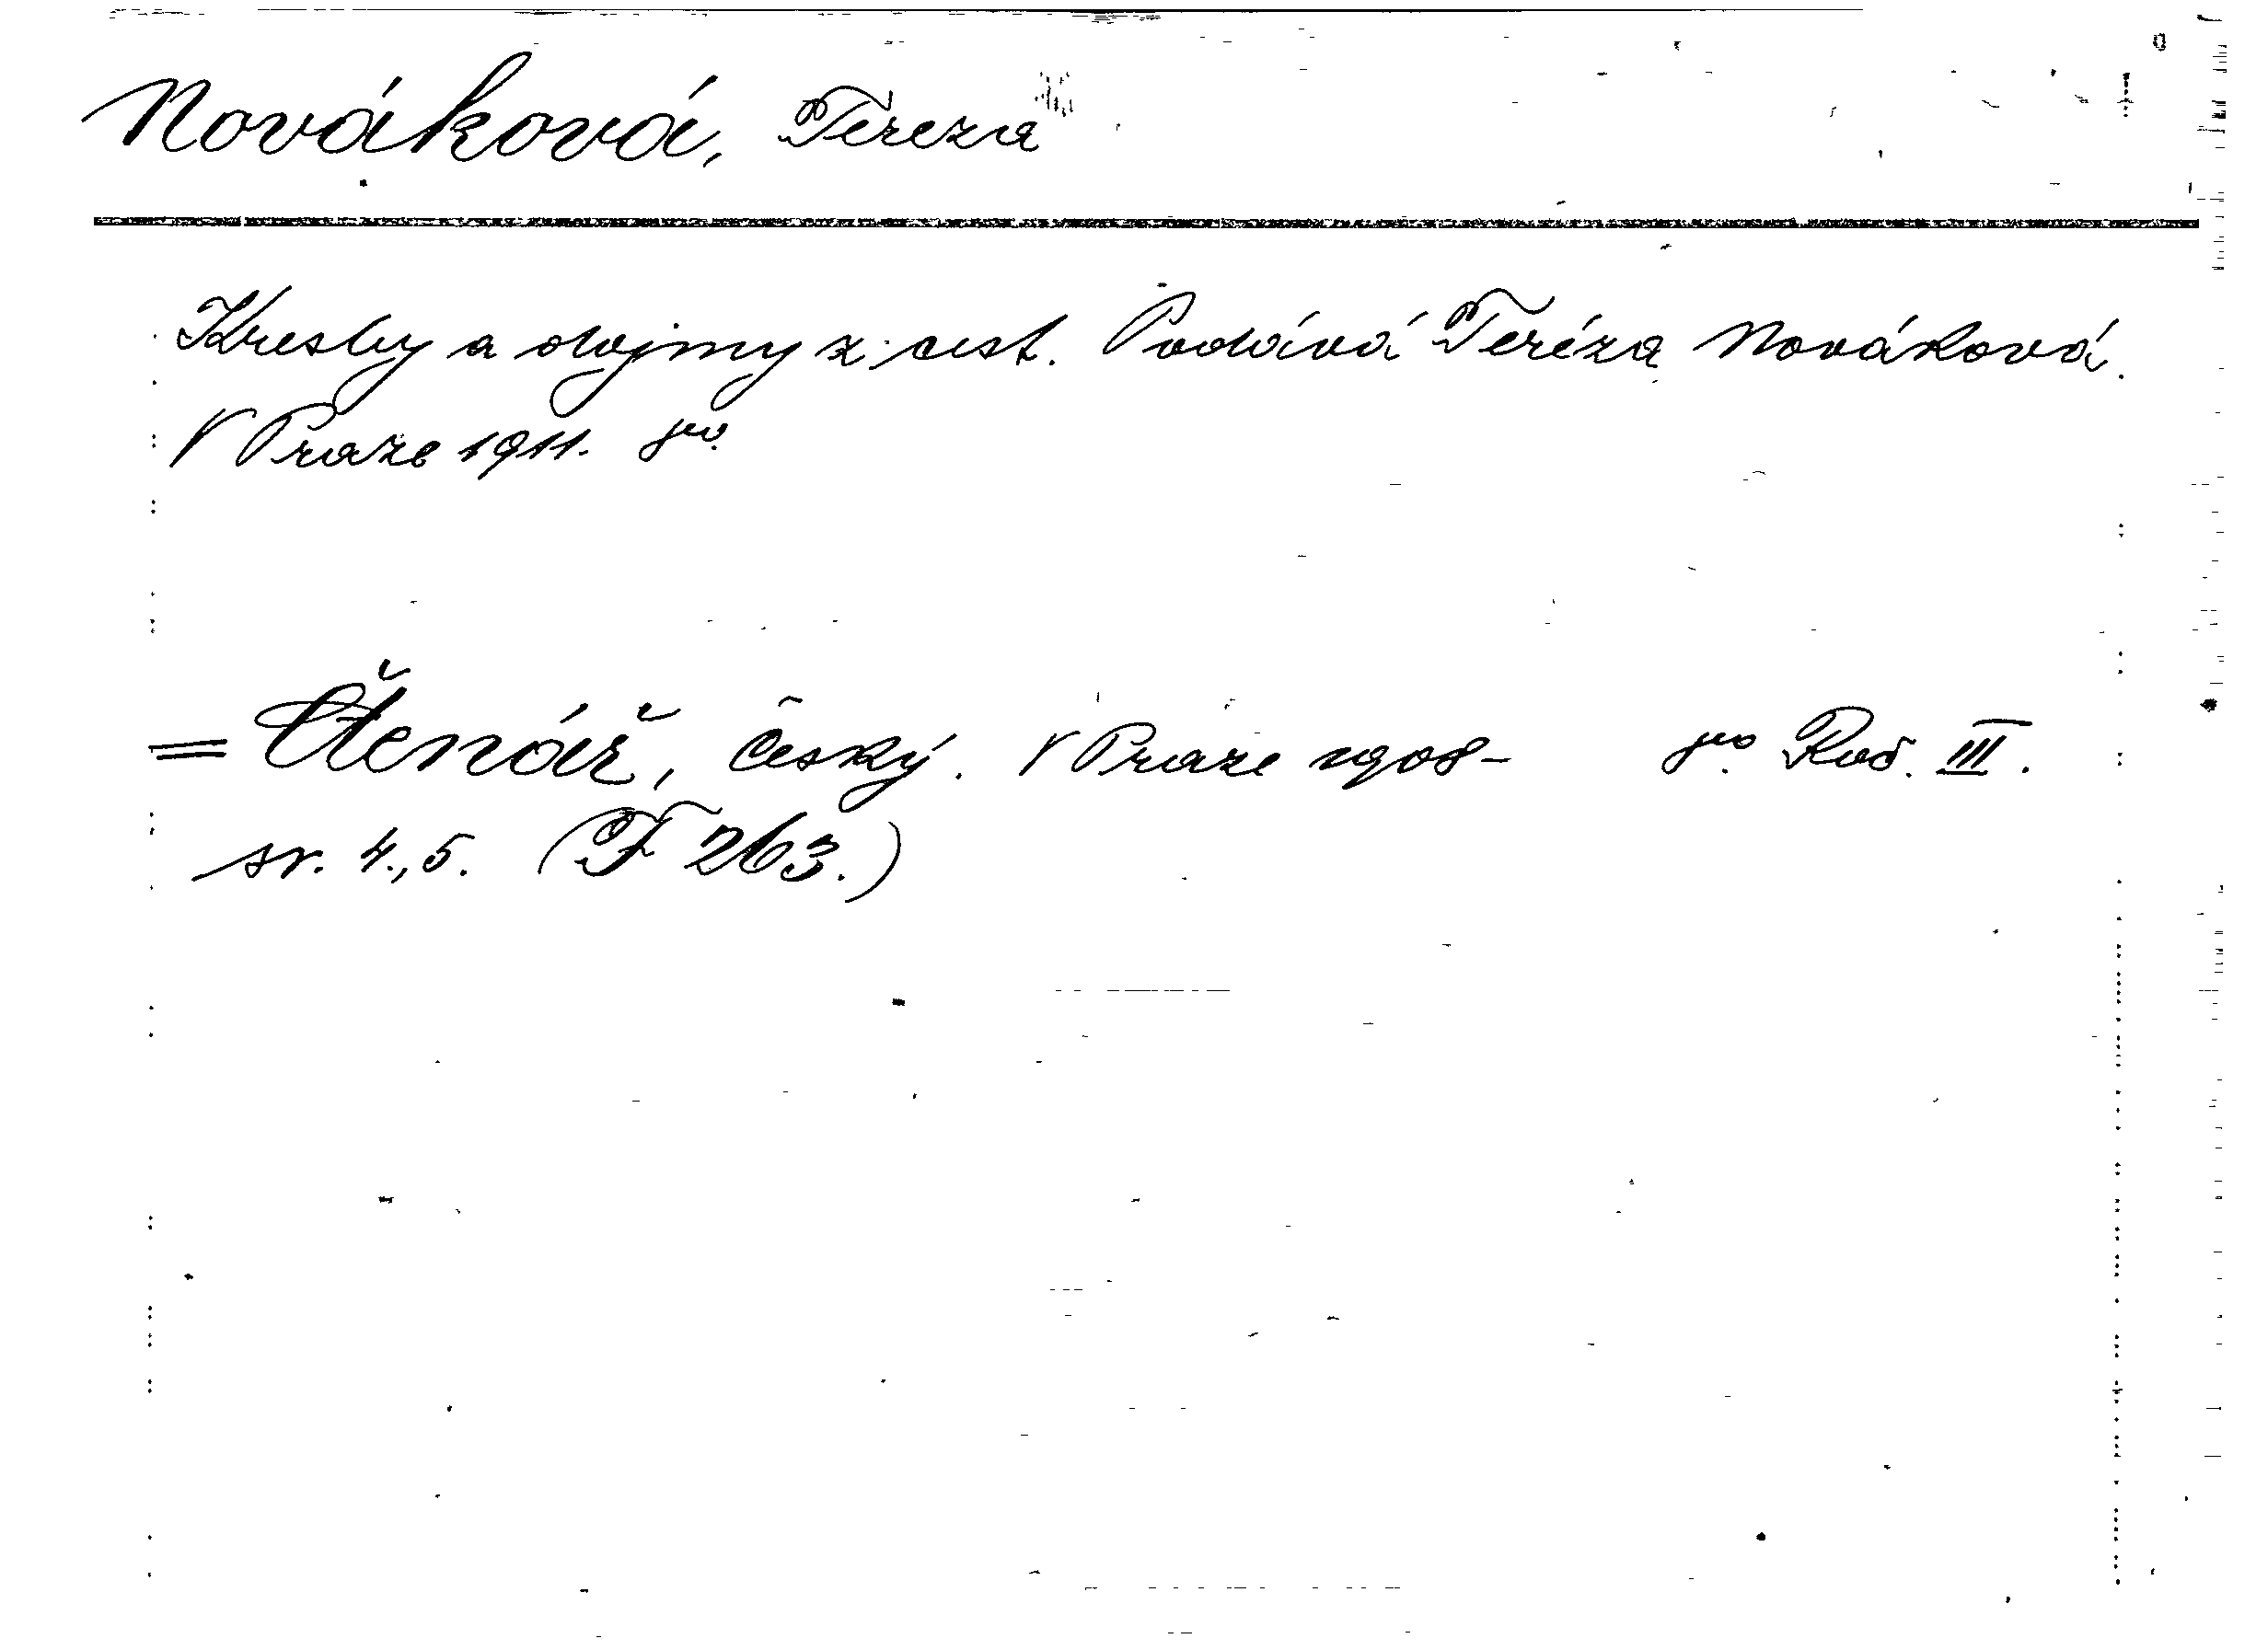 Nováková, Teréza
Kresby a dojmy z cest. Podává Teréza Nováková.
V Praze 1911. 8vo.
= Čtenář, český. V Praze 1908- 8vo. Roč. III.
sv. 4., 5. (F 263.)